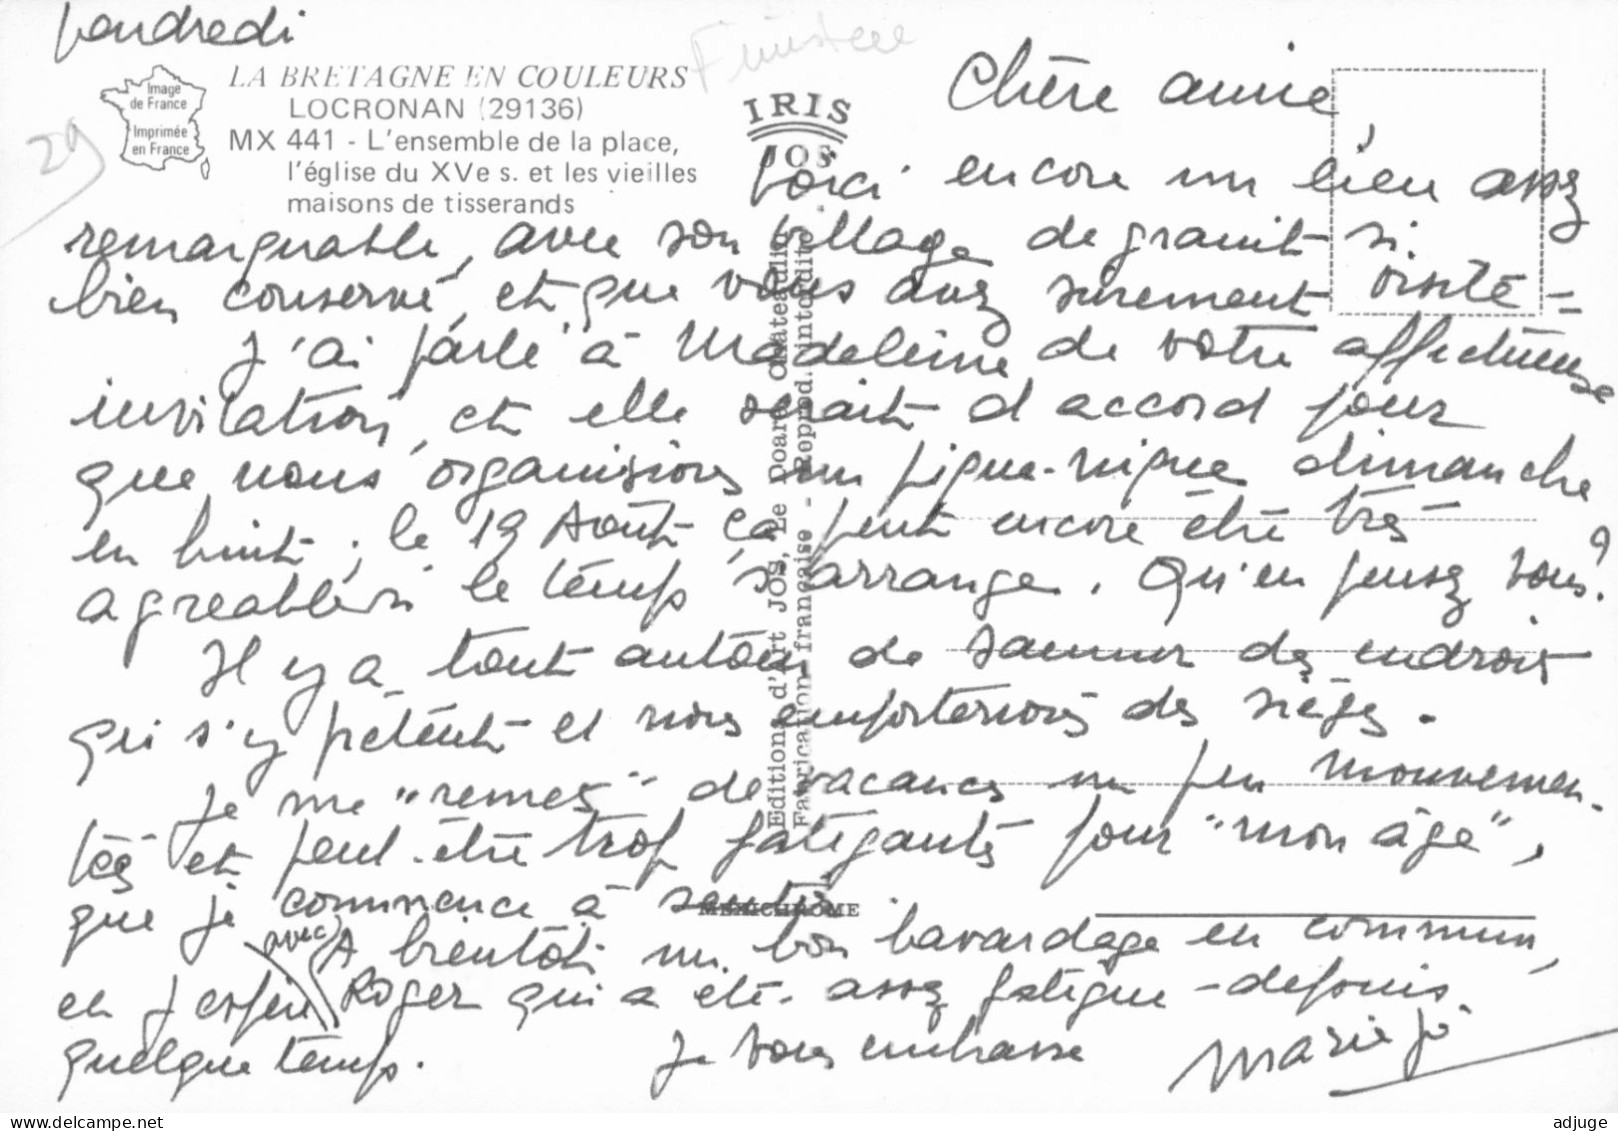 Vendredi
Finistère
29
Image
de France
Imprimée
en France
LA BRETAGNE EN COULEURS
LOCRONAN (29136)
MX 441 - L'ensemble de la place,
l'église du XVe s. et les vieilles
maisons de tisserands
IRIS
JOS
Editions d'Art JOS, Le Doaré, Châteaulin
Fabrication française - Reprod. interdite
MEXICHROME
Chère amie,
Voici encore un lieu assez
remarquable, avec son village de granit si
bien conservé, et que vous avez surement visité =
J'ai parlé à Madeleine de votre affectueuse
invitation, et elle serait d'accord pour
que nous organisions un pique-nique dimanche
en huit ; le 19 Août ça peut encore être très
agréable si le temps s'arrange. Qu'en pensez vous ?
Il y a tout autour de Saumur des endroits
qui s'y prêtent et nous emporterions des sièges.
Je me "remets" de vacances un peu mouvemen-
tées et peut-être trop fatigantes pour "mon âge",
que je commence à sentir
A bientôt un bon bavardage en commun,
et j'espère avec Roger qui a été assez fatigué depuis
quelque temps. Je vous embrasse Marie Jo
adjuge.com